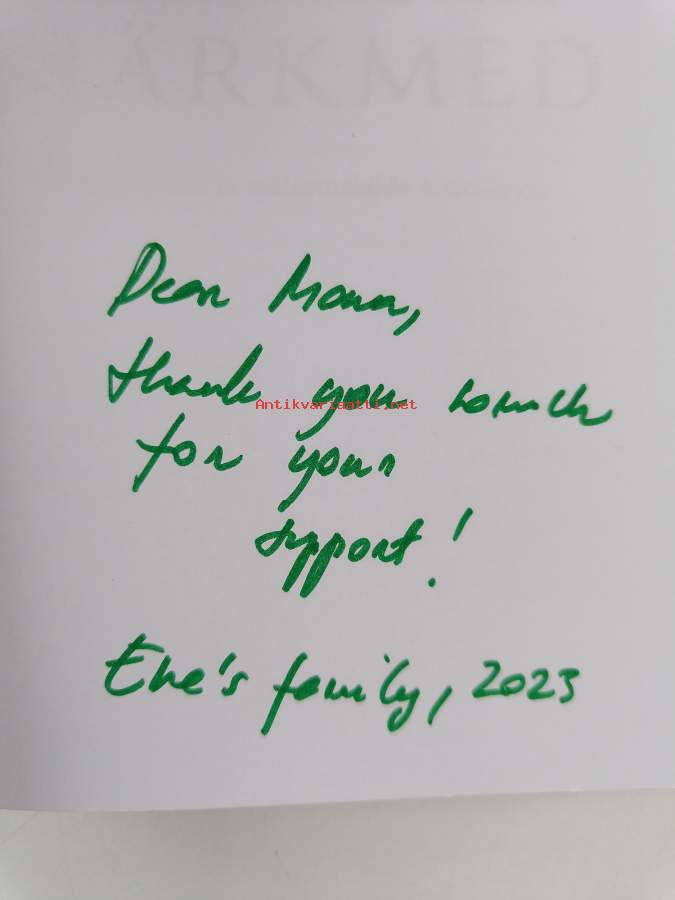 ÄRKMED
Dear
thank you so much
Antikvariaatti.net
for your
support!
Ene's family, 2023